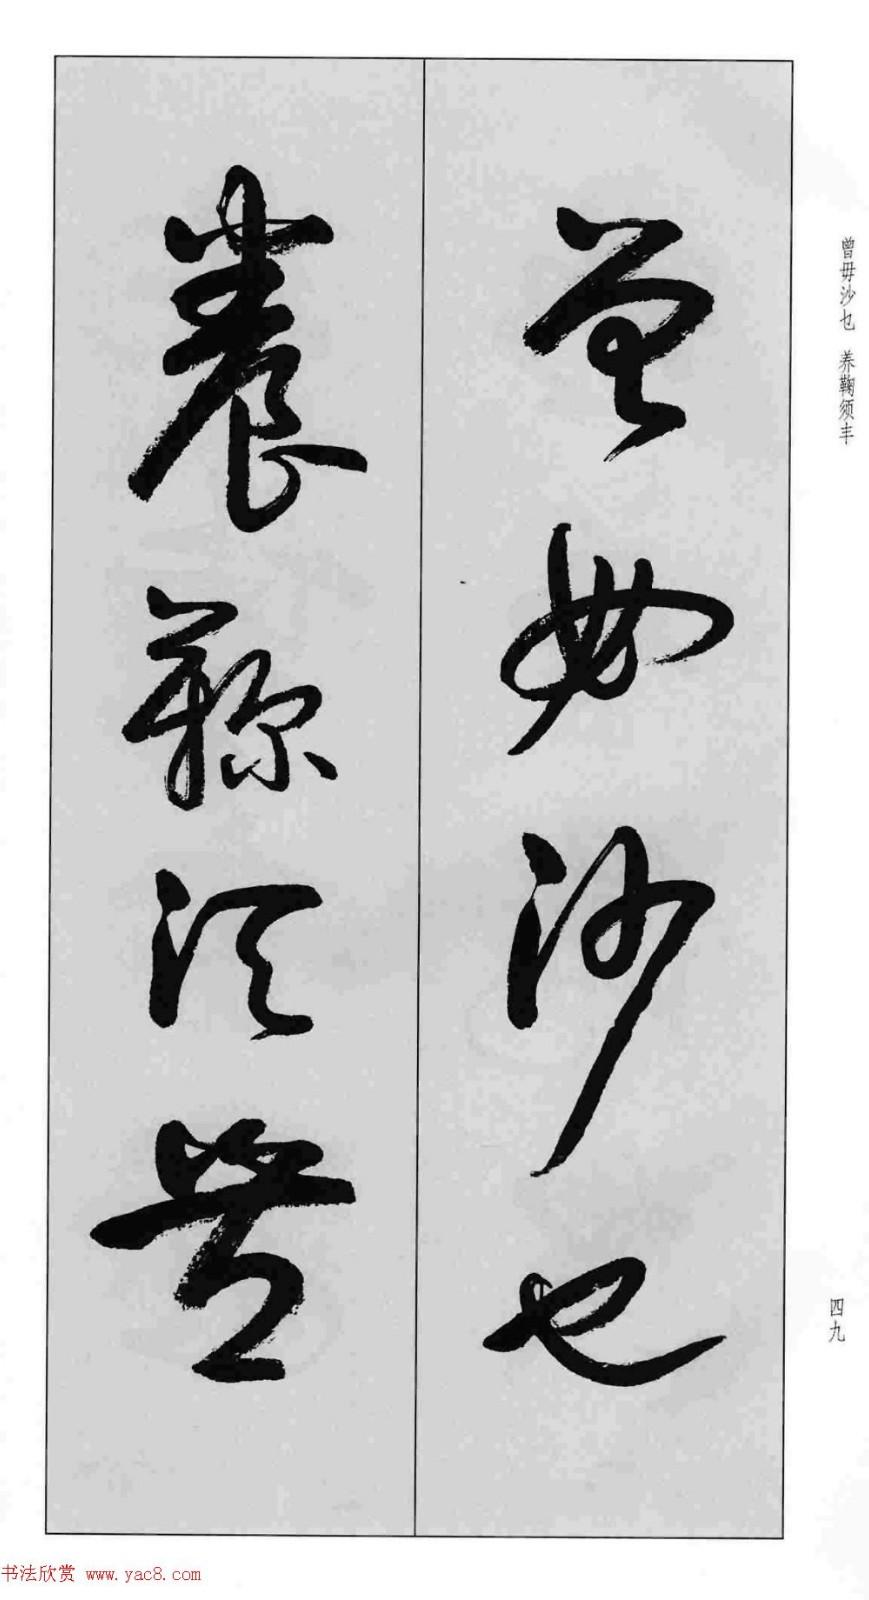 曾毋沙乜
養鞠須豐
曾毋沙乜 养鞠须丰
四九
书法欣赏 www.yac8.com